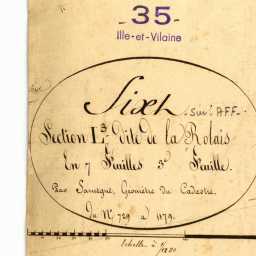 35
Ille-et-Vilaine
Sixt sur AFF.
Section L, 3e dite de la Rolais
En 7 Feuilles 3e Feuille.
Par Géomètre du Cadastre
Du No 729 à 1179.
Echelle à